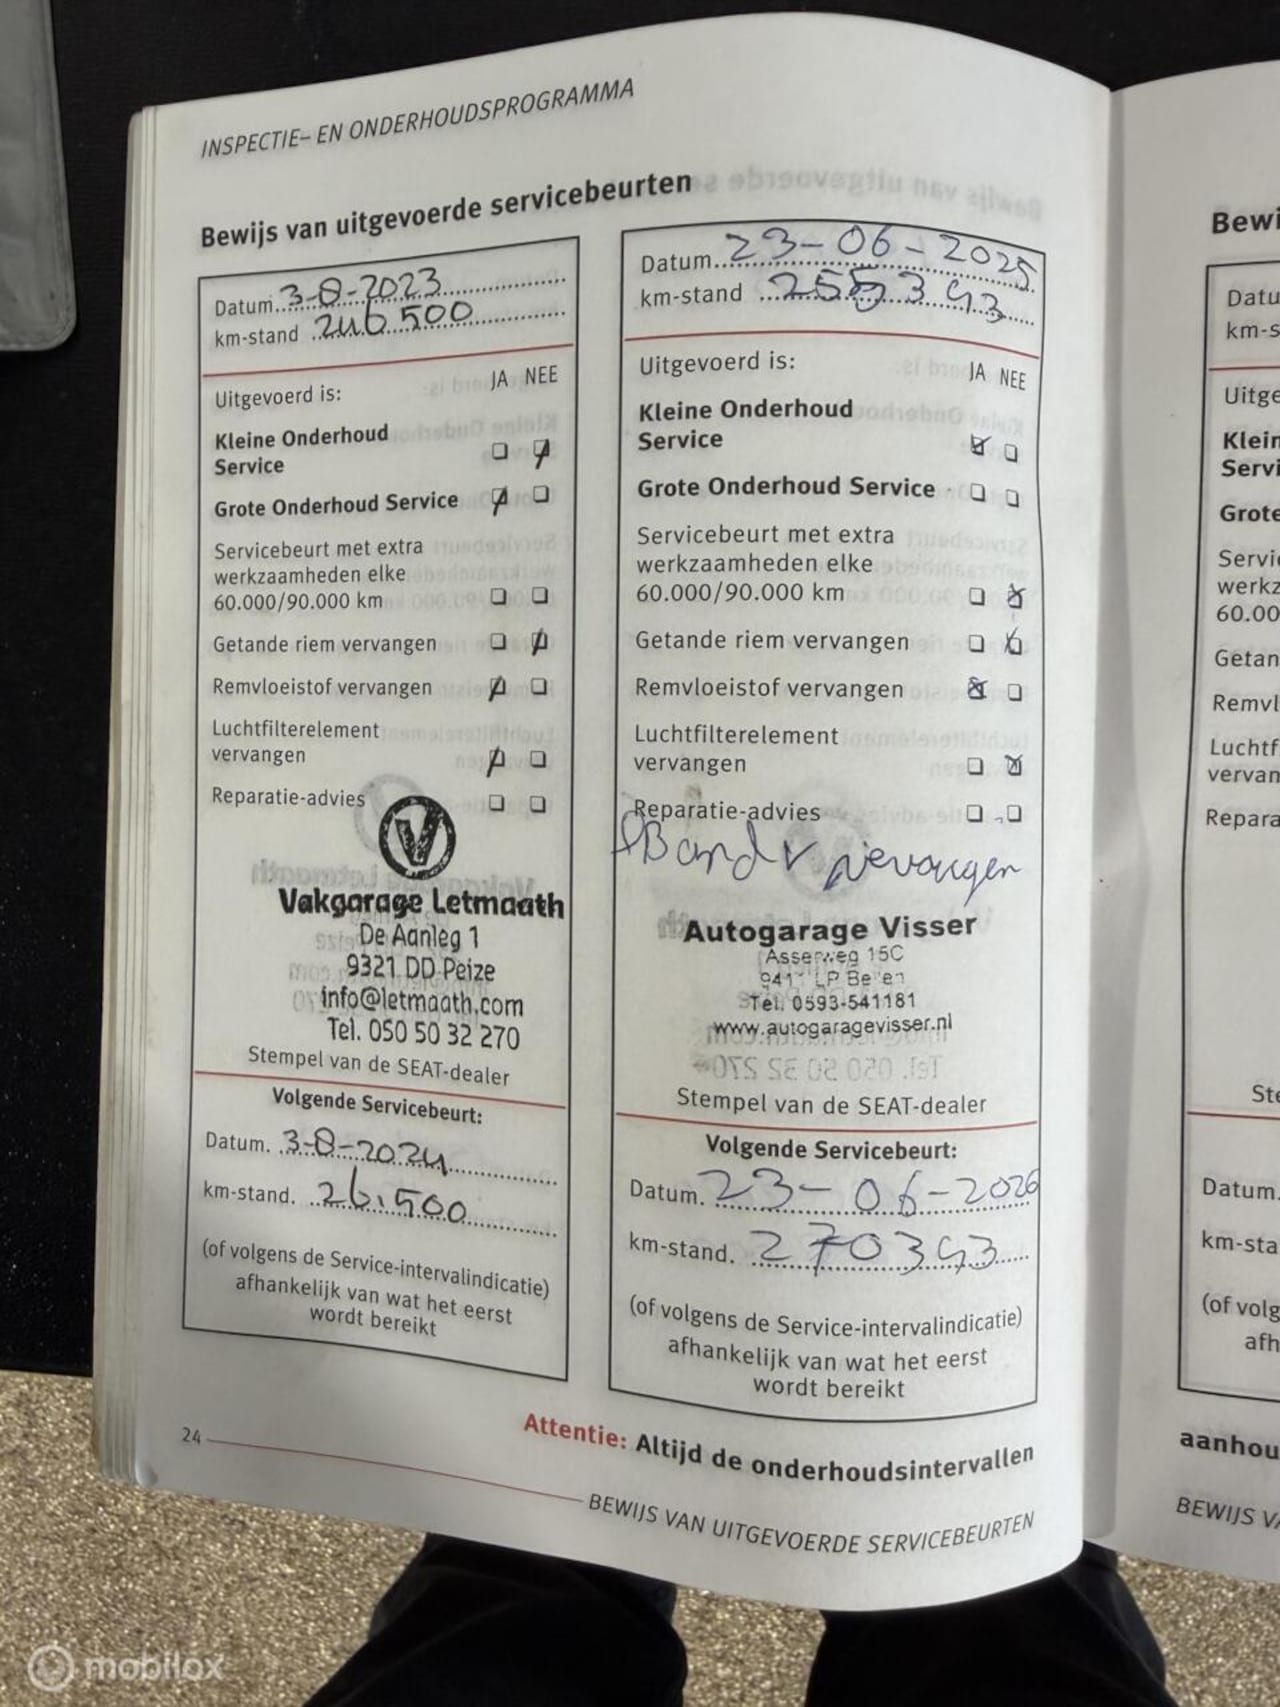 INSPECTIE- EN ONDERHOUDSPROGRAMMA
Bewijs van uitgevoerde servicebeurten
Datum 3-8-2023
km-stand 246 500
Uitgevoerd is:
JA NEE
Kleine Onderhoud
Service
Grote Onderhoud Service
Servicebeurt met extra
werkzaamheden elke
60.000/90.000 km
Getande riem vervangen
Remvloeistof vervangen
Luchtfilterelement
vervangen
Reparatie-advies
V
Vakgarage Letmaath
De Aanleg 1
9321 DD Peize
info@letmaath.com
Tel. 050 50 32 270
Stempel van de SEAT-dealer
Volgende Servicebeurt:
Datum. 3-8-2024
km-stand. 26.500
(of volgens de Service-intervalindicatie)
afhankelijk van wat het eerst
wordt bereikt
Datum 23-06-2025
km-stand 255393
Uitgevoerd is:
JA NEE
Kleine Onderhoud
Service
Grote Onderhoud Service
Servicebeurt met extra
werkzaamheden elke
60.000/90.000 km
Getande riem vervangen
Remvloeistof vervangen
Luchtfilterelement
vervangen
Reparatie-advies
Autogarage Visser
Asserweg 15C
LP
Tel. 0593-541181
www.autogaragevisser.nl
Stempel van de SEAT-dealer
Volgende Servicebeurt:
Datum. 23-06-2026
km-stand. 270393
(of volgens de Service-intervalindicatie)
afhankelijk van wat het eerst
wordt bereikt
Attentie: Altijd de onderhoudsintervallen
24
BEWIJS VAN UITGEVOERDE SERVICEBEURTEN
Bewi
Datu
km-s
Uitge
Klein
Servi
Grote
Servic
werkz
60.00
Getan
Remvl
Luchtf
vervan
Repara
Ste
Datum.
km-sta
(of volg
afh
aanhou
BEWIJS VA
mobilox